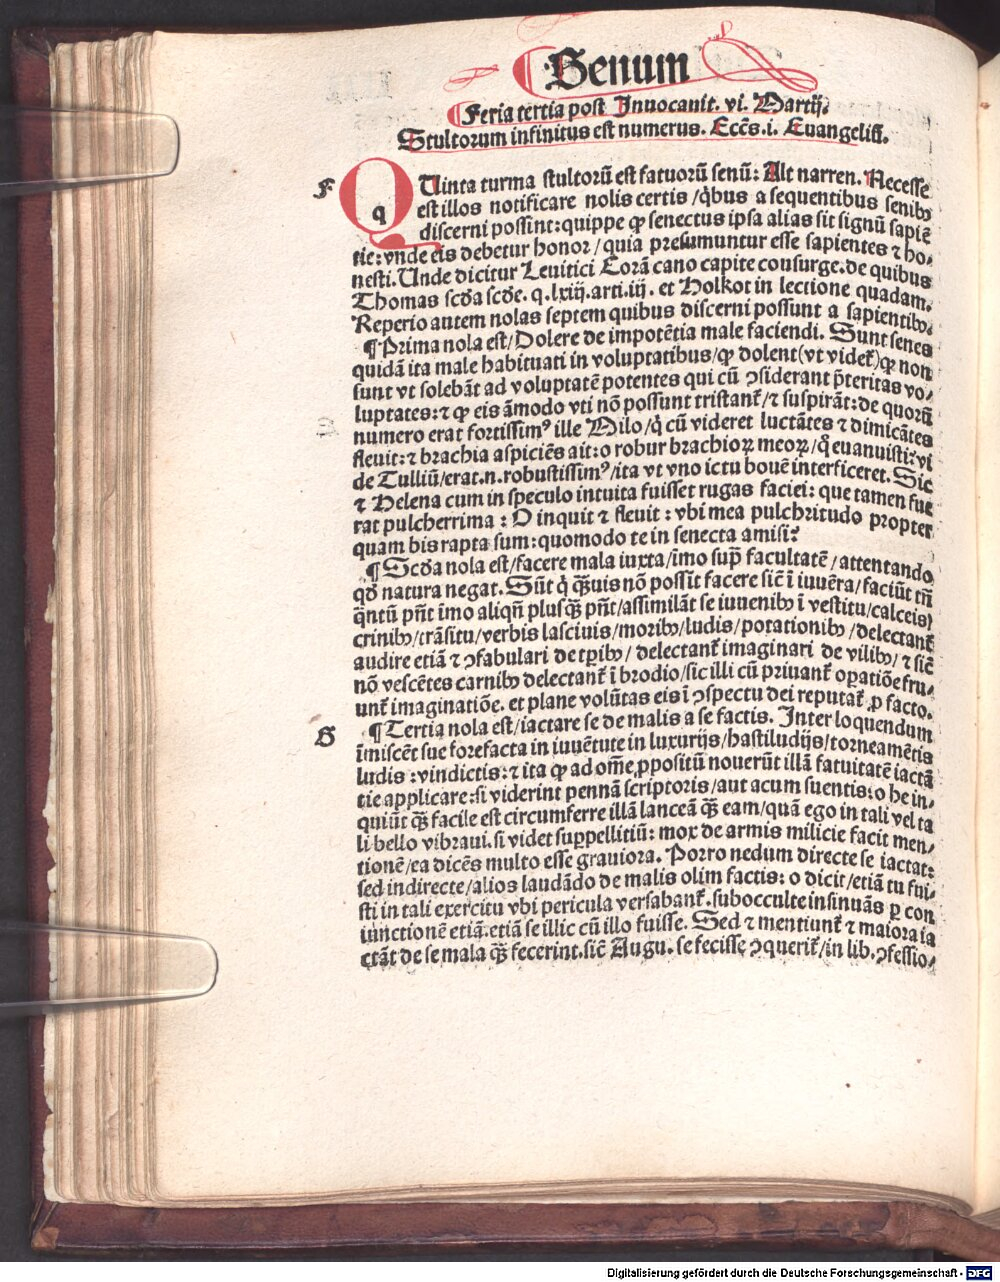 Senum
Feria tertia post Inuocauit. vi. Martij.
Stultorum infinitus est numerus. Eccēs.i. Euangelisſ.
F
QUinta turma stultorū est fatuorū senū: Alt narren. Necesse
q
est illos notificare nolis certis / qͥbus a sequentibus senibꝰ
discerni possint: quippe ꝙ senectus ipsa alias sit signū sapiē
tie: vnde eis debetur honor / quia presumuntur esse sapientes ⁊ ho-
nesti. Unde dicitur Leuitici Corā cano capite consurge. de quibus
Thomas scďa scďe. q. lxiij. arti. iij. et Holkot in lectione quadam.
Reperio autem nolas septem quibus discerni possunt a sapientibꝰ.
¶ Prima nola est / Dolere de impotētia male faciendi. Sunt senes
quidā ita male habituati in voluptatibus / ꝙ dolent (vt videt᷑) ꝙ non
sunt vt solebāt ad voluptatē potentes qui cū ꝯsiderant p̄teritas vo-
luptates: ⁊ ꝙ eis āmodo vti nō possunt tristant᷑ / ⁊ suspirāt: de quorū
numero erat fortissimꝰ ille Milo / q̇ cū videret luctātes ⁊ dimicātes
fleuit: ⁊ brachia aspiciēs ait: o robur brachioꝝ meoꝝ / q̊ euanuisti: vi
de Tulliū / erat .n. robustissimꝰ / ita vt vno ictu bouē interficeret. Sic
⁊ Helena cum in speculo intuita fuisset rugas faciei: que tamen fue
rat pulcherrima: O inquit ⁊ fleuit: vbi mea pulchritudo propter
quam bis rapta sum: quomodo te in senecta amisi?
¶ Scďa nola est / facere mala iuxta / īmo supͣ facultatē / attentando
qď natura negat. Sūt q̇ q̃uis nō possīt facere sic̄ ī iuuēta / faciūt tn̄
q̄ntū pn̄t īmo aliqn̄ plusq̃ pn̄t / assimilāt se iuuenibꝰ ī vestitu / calceis /
crinibꝰ / trāsitu / verbis lasciuis / moribꝰ / ludis / potationibꝰ / delectant᷑
audire etiā ⁊ ꝯfabulari de tꝑibꝰ / delectant᷑ imaginari de vilibꝰ / ⁊ sic̄
nō vescētes carnibꝰ delectant᷑ ī brodio / sic illi cū priuant᷑ oꝑatiōe fru-
unt᷑ imaginatiōe. et plane volūtas eis ī ꝯspectu dei reputat᷑ ꝓ facto.
G
¶ Tertia nola est / iactare se de malis a se factis. Inter loquendum
īmiscēt sue forefacta in iuuētute in luxurijs / hastiludijs / torneamētis
ludis: vindictis: ⁊ ita ꝙ ad om̄e ꝓpositū nouerūt illā fatuitatē iactā
tie applicare: si viderint pennā scriptoris / aut acum suentis: o he in-
quiūt q̃ facile est circumferre illā lanceā q̃ eam / quā ego in tali vel ta
li bello vibraui. si videt suꝑpellitiū: mox de armis milicie facit men-
tionē / ea dicēs multo esse grauiora. Porro nedum directe se iactat:
sed indirecte / alios laudādo de malis olim factis: o dicit / etiā tu fui-
sti in tali exercitu vbi pericula versabant᷑. subocculte insinuās ꝑ con
iunctionē etiā. etiā se illic cū illo fuisse. Sed ⁊ mentiunt᷑ ⁊ maiora ia
ctāt de se mala q̃ fecerint. sic̄ Augu. se fecisse ꝯquerit᷑ / in lib. ꝯfessio-
Digitalisierung gefördert durch die Deutsche Forschungsgemeinschaft - DFG